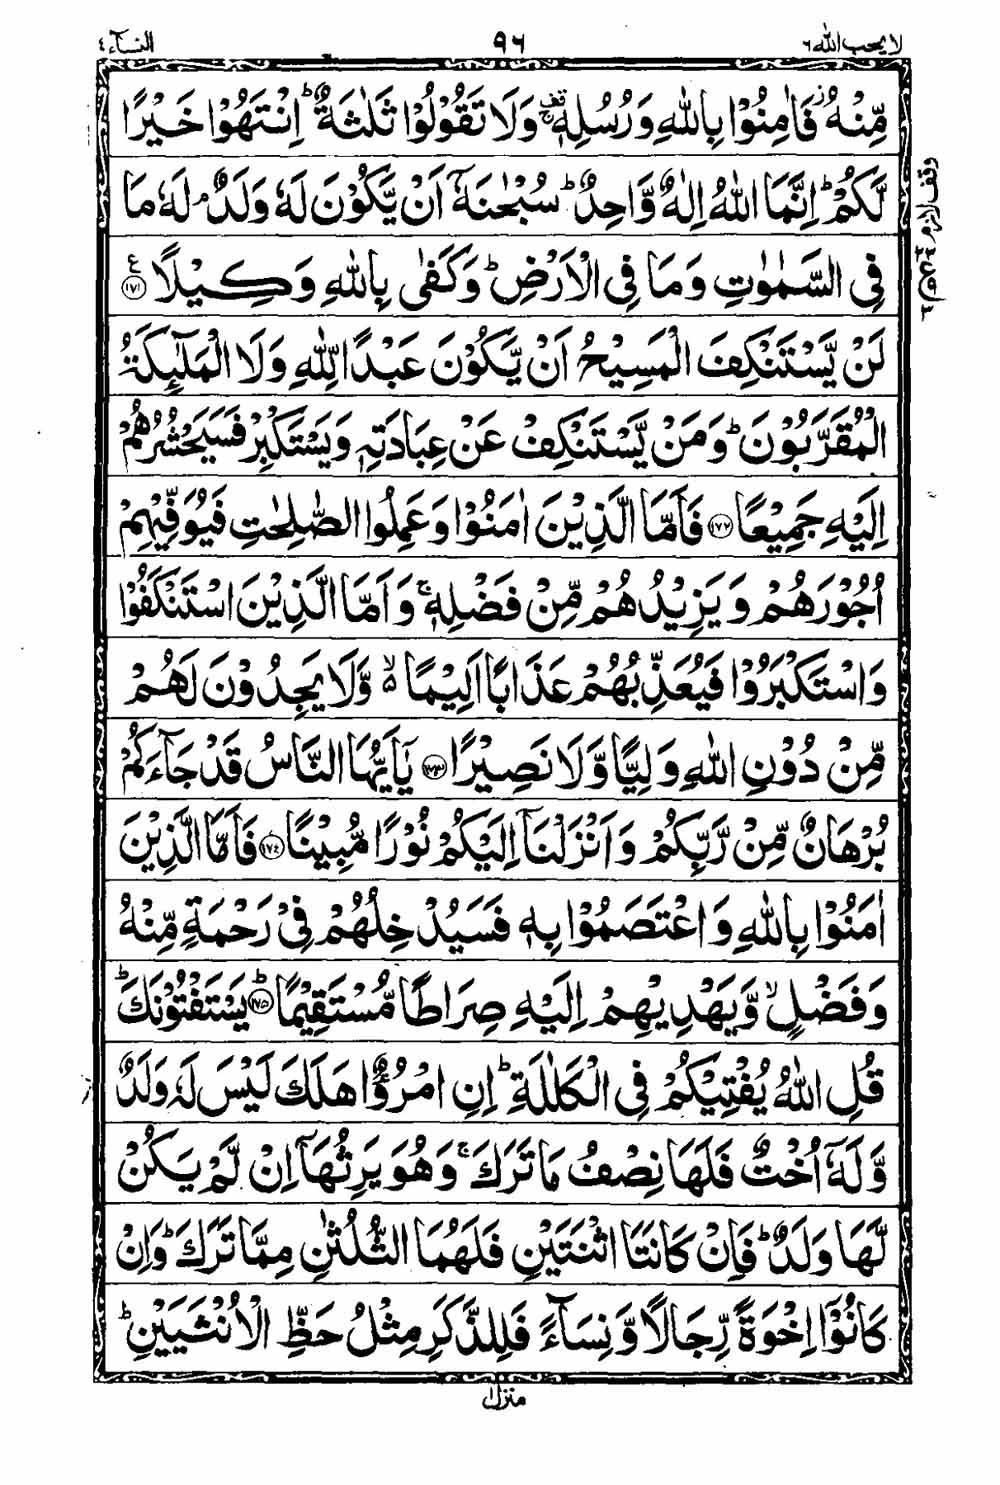 لا یحب الله ٦ ٩٦ النسآء ٤
مِّنْهُ ۫ فَاٰمِنُوْا بِاللّٰهِ وَ رُسُلِهٖ ۚ۫ وَ لَا تَقُوْلُوْا ثَلٰثَةٌ ؕ اِنْتَهُوْا خَیْرًا
لَّكُمْ ؕ اِنَّمَا اللّٰهُ اِلٰهٌ وَّاحِدٌ ؕ سُبْحٰنَهٗۤ اَنْ یَّكُوْنَ لَهٗ وَلَدٌ ۘ لَهٗ مَا
فِی السَّمٰوٰتِ وَ مَا فِی الْاَرْضِ ؕ وَ كَفٰی بِاللّٰهِ وَكِیْلًا ﴿۱۷۱﴾ ع
لَنْ یَّسْتَنْكِفَ الْمَسِیْحُ اَنْ یَّكُوْنَ عَبْدًا لِّلّٰهِ وَ لَا الْمَلٰٓىِٕكَةُ
الْمُقَرَّبُوْنَ ؕ وَ مَنْ یَّسْتَنْكِفْ عَنْ عِبَادَتِهٖ وَ یَسْتَكْبِرْ فَسَیَحْشُرُهُمْ
اِلَیْهِ جَمِیْعًا ﴿۱۷۲﴾ فَاَمَّا الَّذِیْنَ اٰمَنُوْا وَ عَمِلُوا الصّٰلِحٰتِ فَیُوَفِّیْهِمْ
اُجُوْرَهُمْ وَ یَزِیْدُهُمْ مِّنْ فَضْلِهٖ ۚ وَ اَمَّا الَّذِیْنَ اسْتَنْكَفُوْا
وَ اسْتَكْبَرُوْا فَیُعَذِّبُهُمْ عَذَابًا اَلِیْمًا ۙ۬ وَّ لَا یَجِدُوْنَ لَهُمْ
مِّنْ دُوْنِ اللّٰهِ وَلِیًّا وَّ لَا نَصِیْرًا ﴿۱۷۳﴾ یٰۤاَیُّهَا النَّاسُ قَدْ جَآءَكُمْ
بُرْهَانٌ مِّنْ رَّبِّكُمْ وَ اَنْزَلْنَاۤ اِلَیْكُمْ نُوْرًا مُّبِیْنًا ﴿۱۷٤﴾ فَاَمَّا الَّذِیْنَ
اٰمَنُوْا بِاللّٰهِ وَ اعْتَصَمُوْا بِهٖ فَسَیُدْخِلُهُمْ فِیْ رَحْمَةٍ مِّنْهُ
وَ فَضْلٍ ۙ وَّ یَهْدِیْهِمْ اِلَیْهِ صِرَاطًا مُّسْتَقِیْمًا ﴿۱۷۵﴾ؕ یَسْتَفْتُوْنَكَ ؕ
قُلِ اللّٰهُ یُفْتِیْكُمْ فِی الْكَلٰلَةِ ؕ اِنِ امْرُؤٌا هَلَكَ لَیْسَ لَهٗ وَلَدٌ
وَّ لَهٗۤ اُخْتٌ فَلَهَا نِصْفُ مَا تَرَكَ ۚ وَ هُوَ یَرِثُهَاۤ اِنْ لَّمْ یَكُنْ
لَّهَا وَلَدٌ ؕ فَاِنْ كَانَتَا اثْنَتَیْنِ فَلَهُمَا الثُّلُثٰنِ مِمَّا تَرَكَ ؕ وَ اِنْ
كَانُوْۤا اِخْوَةً رِّجَالًا وَّ نِسَآءً فَلِلذَّكَرِ مِثْلُ حَظِّ الْاُنْثَیَیْنِ ؕ
منزل ۱
وقف لازم